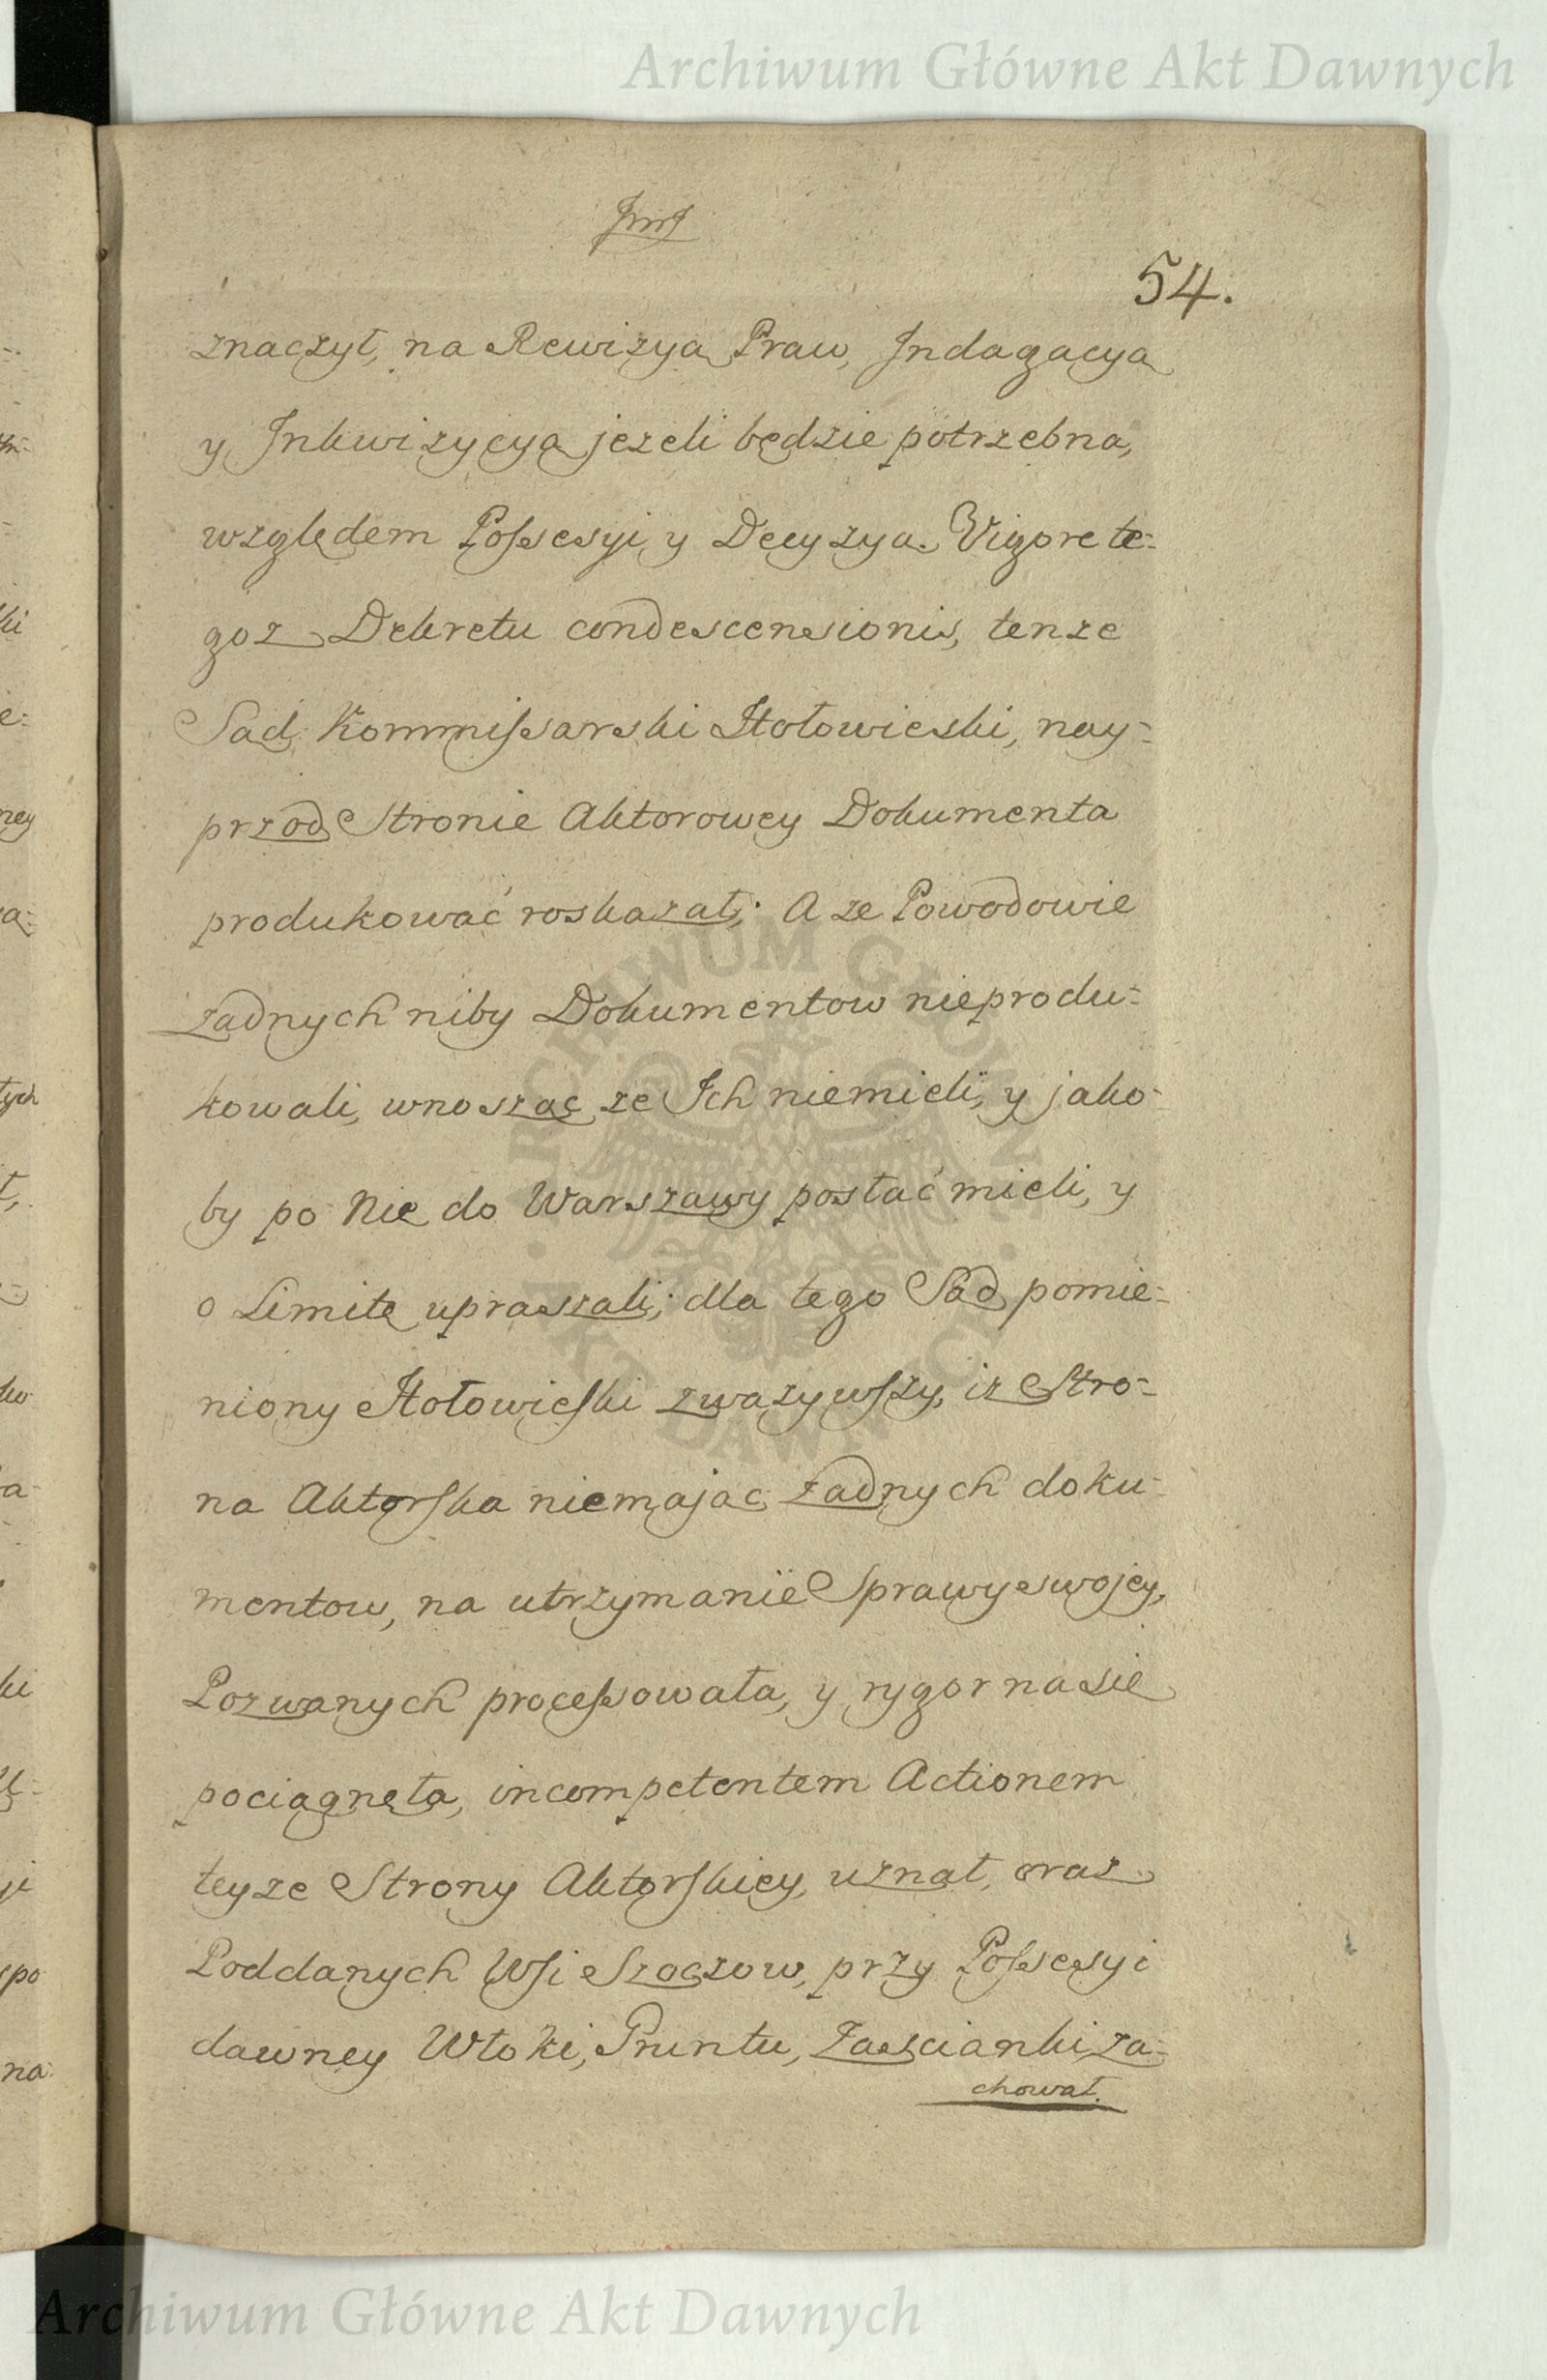 Archiwum Główne Akt Dawnych
54.
znaczył, na Rewizyą Praw, Jndagacyą
y Jnkwizycyą jezeli będzie potrzebna,
względem Possesyi, y Decyzyą. Vigore te=
goz Dekretu condescensionis, tenze
Sąd Kommissarski Hołowieski, nay=
przod Stronie Aktorowey Dokumenta
produkować roskazał; A ze Powodowie
zadnych niby Dokumentow nieprodu=
kowali, wnosząc ze Jch niemieli, y jako=
by po Nie do Warszawy posłać mieli, y
o Limitę upraszali; dla tego Sąd pomie=
niony Hołowieski zwazywszy, iz Stro=
na Aktorska niemając zadnych doku=
mentow, na utrzymanie Sprawy swojey,
Pozwanych processowała, y rygor na się
pociągnęła, incompetentem Actionem
teyze Strony Aktorskiey, uznał, oraz
Poddanych Wsi Szoczow, przy Possesyi
dawney Włoki, Gruntu, Zascianki za=
chował.
ARCHIWUM GŁÓWNE
AKT DAWNYCH
Archiwum Główne Akt Dawnych